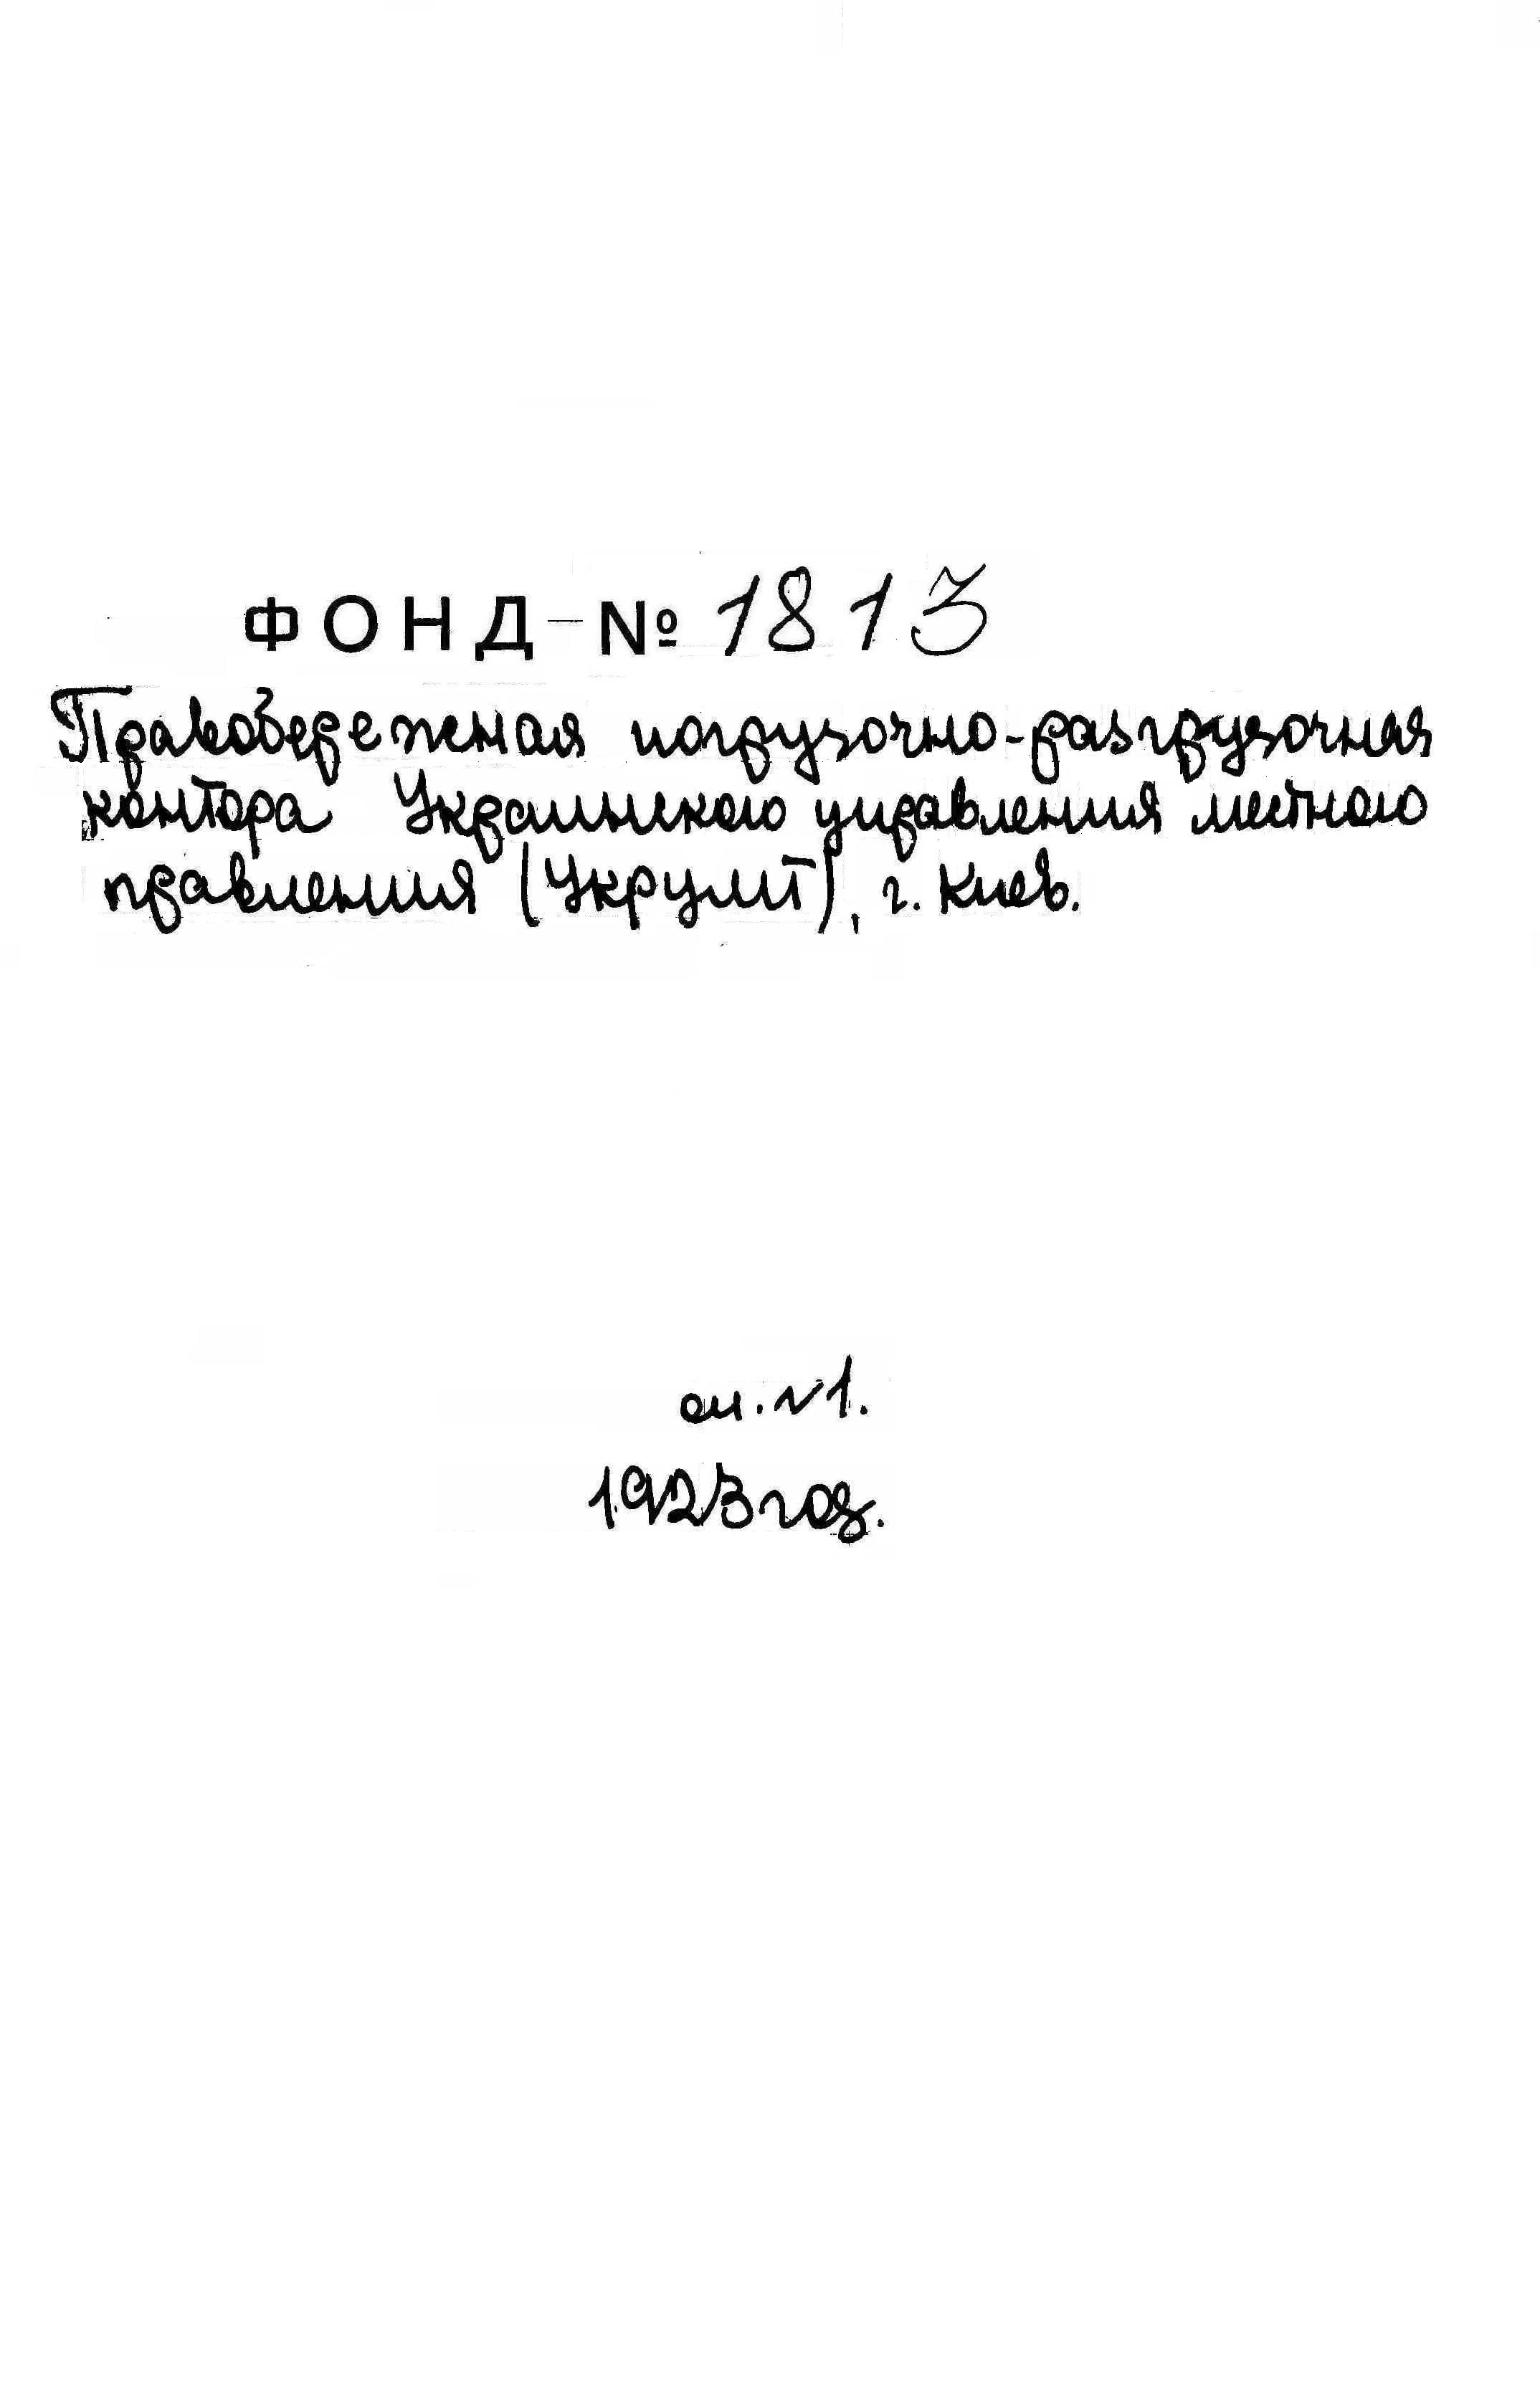 ФОНД-№ 1813
Правобережная погрузочно-разгрузочная
контора Украинского управления местного
правления (Укрумт), г. Киев.
оп. №1.
1923 год.